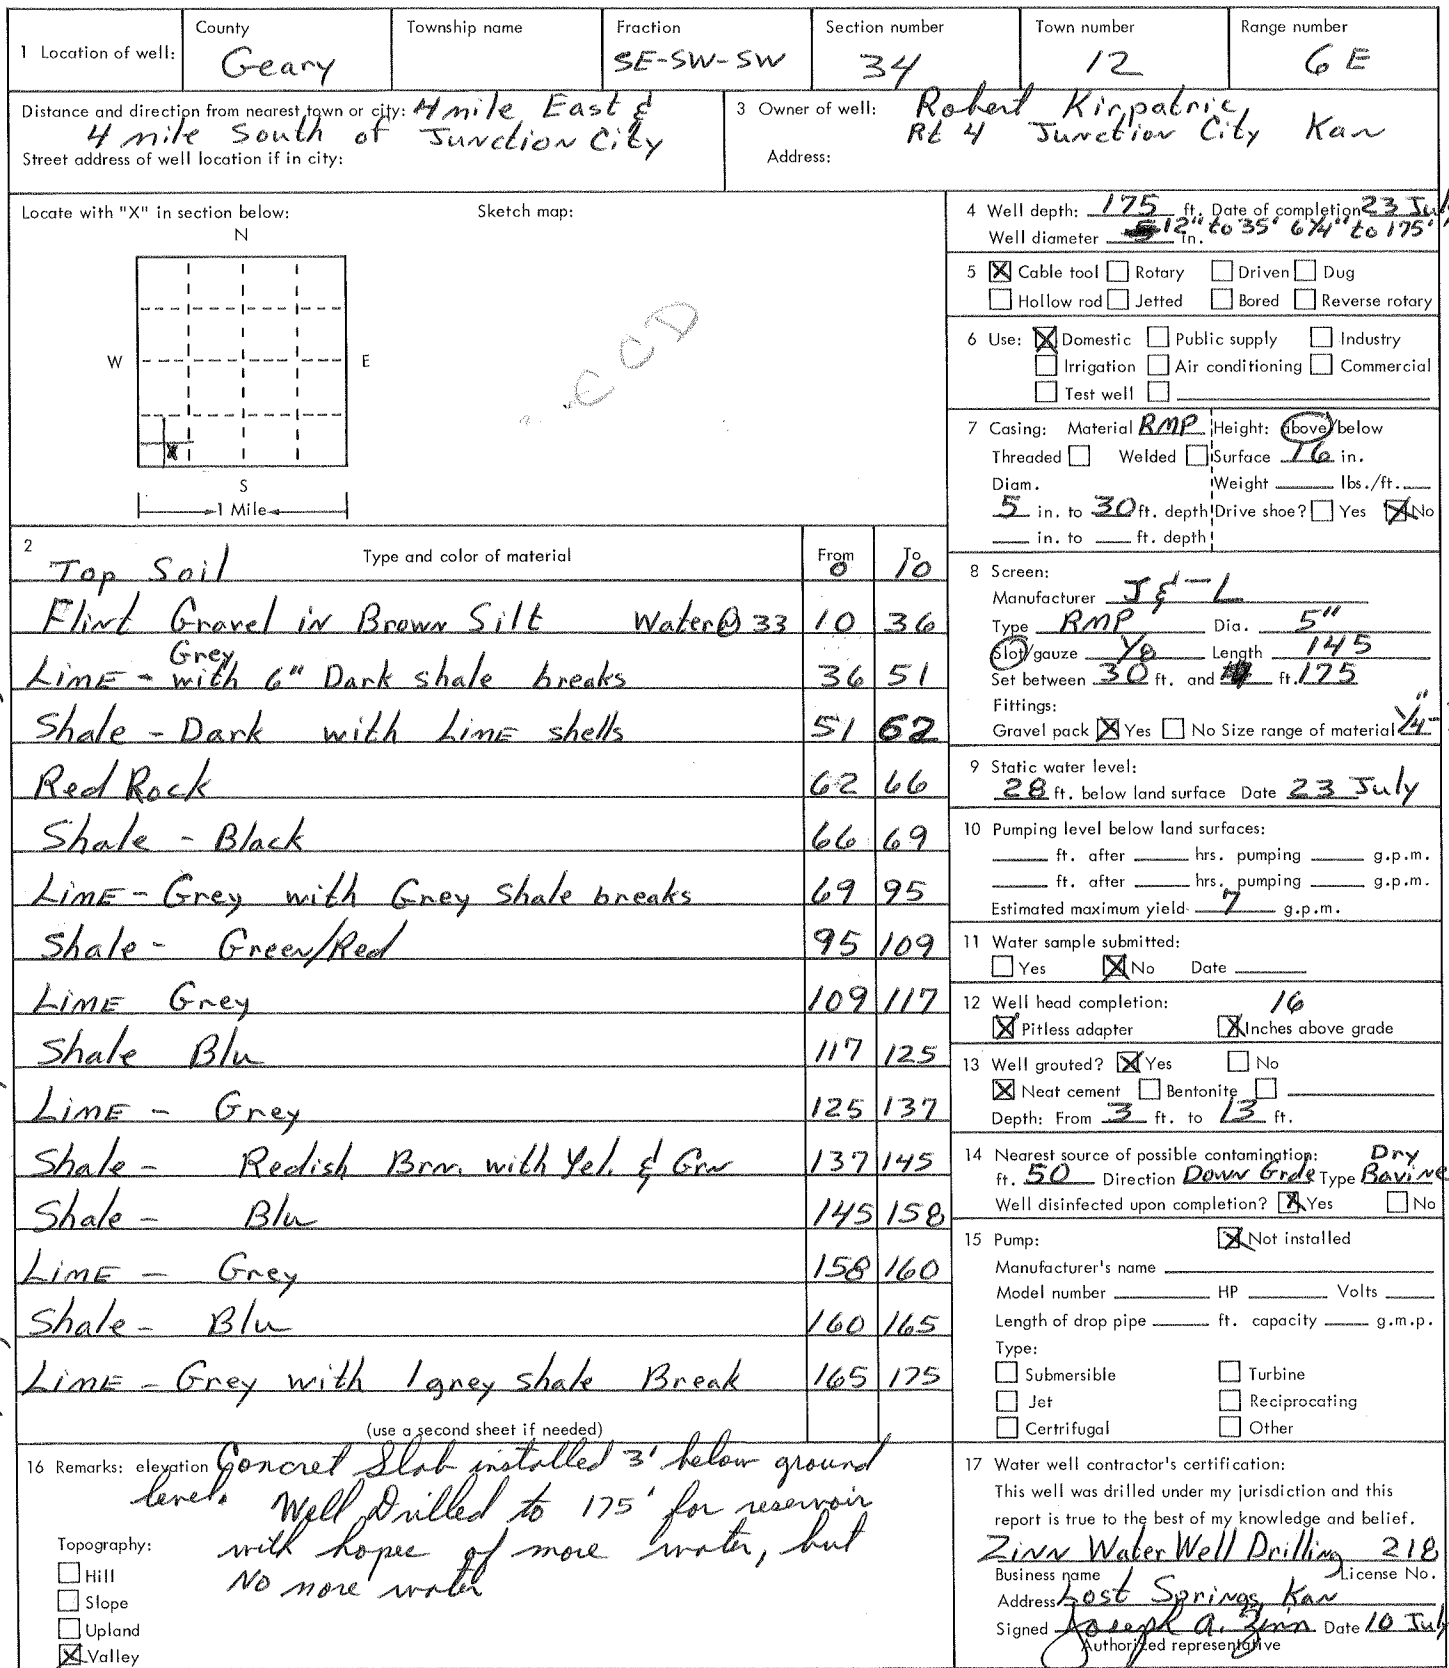 1 Location of well: County Geary Township name Fraction SE-SW-SW Section number 34 Town number 12 Range number 6 E
Distance and direction from nearest town or city: 4 mile East &
4 mile South of Junction City
Street address of well location if in city:
3 Owner of well: Robert Kirpatric
Rt 4 Junction City Kan
Address:
Locate with "X" in section below: Sketch map:
N
W E
X
S
1 Mile
CCD
2 Type and color of material From To
Top Soil 0 10
Flint Gravel in Brown Silt Water @ 33 10 36
Grey
Lime - with 6" Dark shale breaks 36 51
Shale - Dark with Lime shells 51 62
Red Rock 62 66
Shale - Black 66 69
Lime - Grey with Grey Shale breaks 69 95
Shale - Green/Red 95 109
Lime Grey 109 117
Shale Blu 117 125
Lime - Grey 125 137
Shale - Redish Brn. with Yel. & Grn 137 145
Shale - Blu 145 158
Lime - Grey 158 160
Shale - Blu 160 165
Lime - Grey with 1 grey shale Break 165 175
(use a second sheet if needed)
16 Remarks: elevation Concret Slab installed 3' below ground
level. Well Drilled to 175' for reservoir
with hopes of more water, but
No more water
Topography:
Hill
Slope
Upland
X Valley
4 Well depth: 175 ft. Date of completion 23 Jul
Well diameter 12" to 35' 6 1/4" to 175' in.
5 X Cable tool Rotary Driven Dug
Hollow rod Jetted Bored Reverse rotary
6 Use: X Domestic Public supply Industry
Irrigation Air conditioning Commercial
Test well
7 Casing: Material RMP Height: above/below
Threaded Welded Surface 16 in.
Diam. Weight lbs./ft.
5 in. to 30 ft. depth Drive shoe? Yes X No
in. to ft. depth
8 Screen:
Manufacturer J & - L
Type RMP Dia. 5"
Slot/gauze 1/8 Length 145
Set between 30 ft. and ft. 175
Fittings:
Gravel pack X Yes No Size range of material 1/4"-
9 Static water level:
28 ft. below land surface Date 23 July
10 Pumping level below land surfaces:
ft. after hrs. pumping g.p.m.
ft. after hrs. pumping g.p.m.
Estimated maximum yield 7 g.p.m.
11 Water sample submitted:
Yes X No Date
12 Well head completion: 16
X Pitless adapter X Inches above grade
13 Well grouted? X Yes No
X Neat cement Bentonite
Depth: From 3 ft. to 13 ft.
14 Nearest source of possible contamination: Dry
ft. 50 Direction Down Grde Type Ravine
Well disinfected upon completion? X Yes No
15 Pump: X Not installed
Manufacturer's name
Model number HP Volts
Length of drop pipe ft. capacity g.m.p.
Type:
Submersible Turbine
Jet Reciprocating
Certrifugal Other
17 Water well contractor's certification:
This well was drilled under my jurisdiction and this
report is true to the best of my knowledge and belief.
Zinn Water Well Drilling 218
Business name License No.
Address Lost Springs, Kan
Signed Joseph A. Zinn Date 10 Jul
Authorized representative